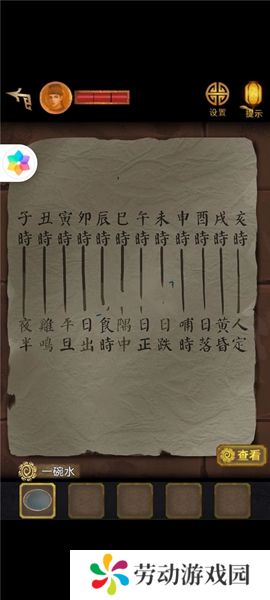 设置 提示
子 丑 寅 卯 辰 巳 午 未 申 酉 戌 亥
時 時 時 時 時 時 時 時 時 時 時 時
夜 雞 平 日 食 隅 日 日 哺 日 黄 人
半 鳴 旦 出 時 中 正 跌 時 落 昏 定
查看
一碗水
劳动游戏园